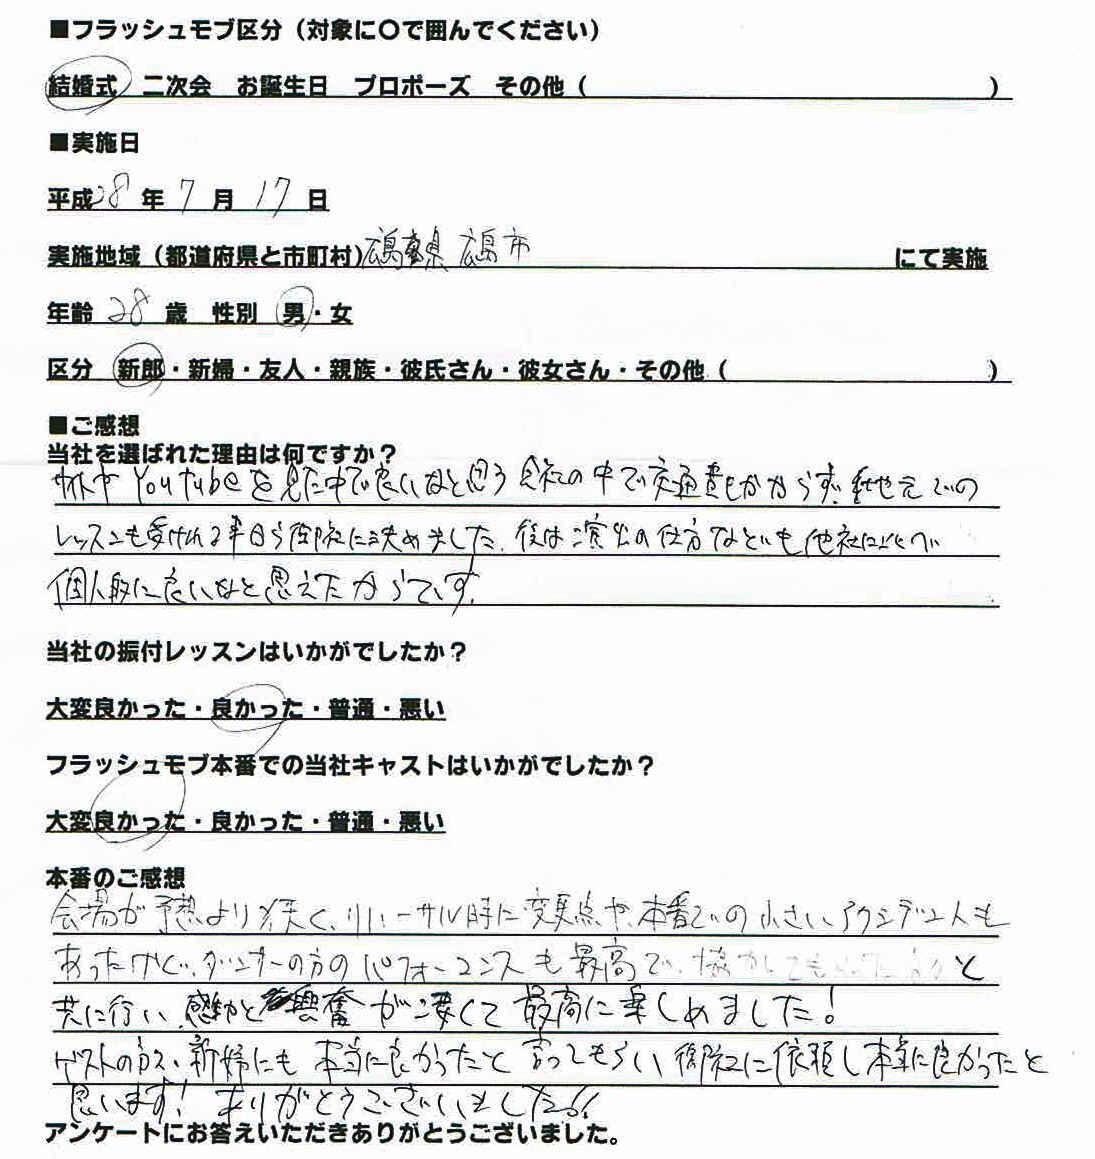 ■フラッシュモブ区分（対象に〇で囲んでください）
結婚式 二次会 お誕生日 プロポーズ その他（ ）
■実施日
平成28年7月17日
実施地域（都道府県と市町村）広島県 広島市 にて実施
年齢 28 歳 性別 男・女
区分 新郎・新婦・友人・親族・彼氏さん・彼女さん・その他（ ）
■ご感想
当社を選ばれた理由は何ですか？
サイトや YouTubeを見た中で良いなと思う会社の中で交通費もかからず、地元での
レッスンも受けれる事から御社に決めました。後は演出の仕方なども他社に比べ
個人的に良いなと思えたからです。
当社の振付レッスンはいかがでしたか？
大変良かった・良かった・普通・悪い
フラッシュモブ本番での当社キャストはいかがでしたか？
大変良かった・良かった・普通・悪い
本番のご感想
会場が予想より狭く、リハーサル時に変更点や、本番での小さいアクシデントも
あったけど、ダンサーの方のパフォーマンスも最高で、協力してもらった と
共に行い、感動と興奮が凄くて最高に楽しめました！
ゲストの方々、新婦にも本当に良かったと言ってもらい御社に依頼し本当に良かったと
思います！ありがとうございました！！
アンケートにお答えいただきありがとうございました。